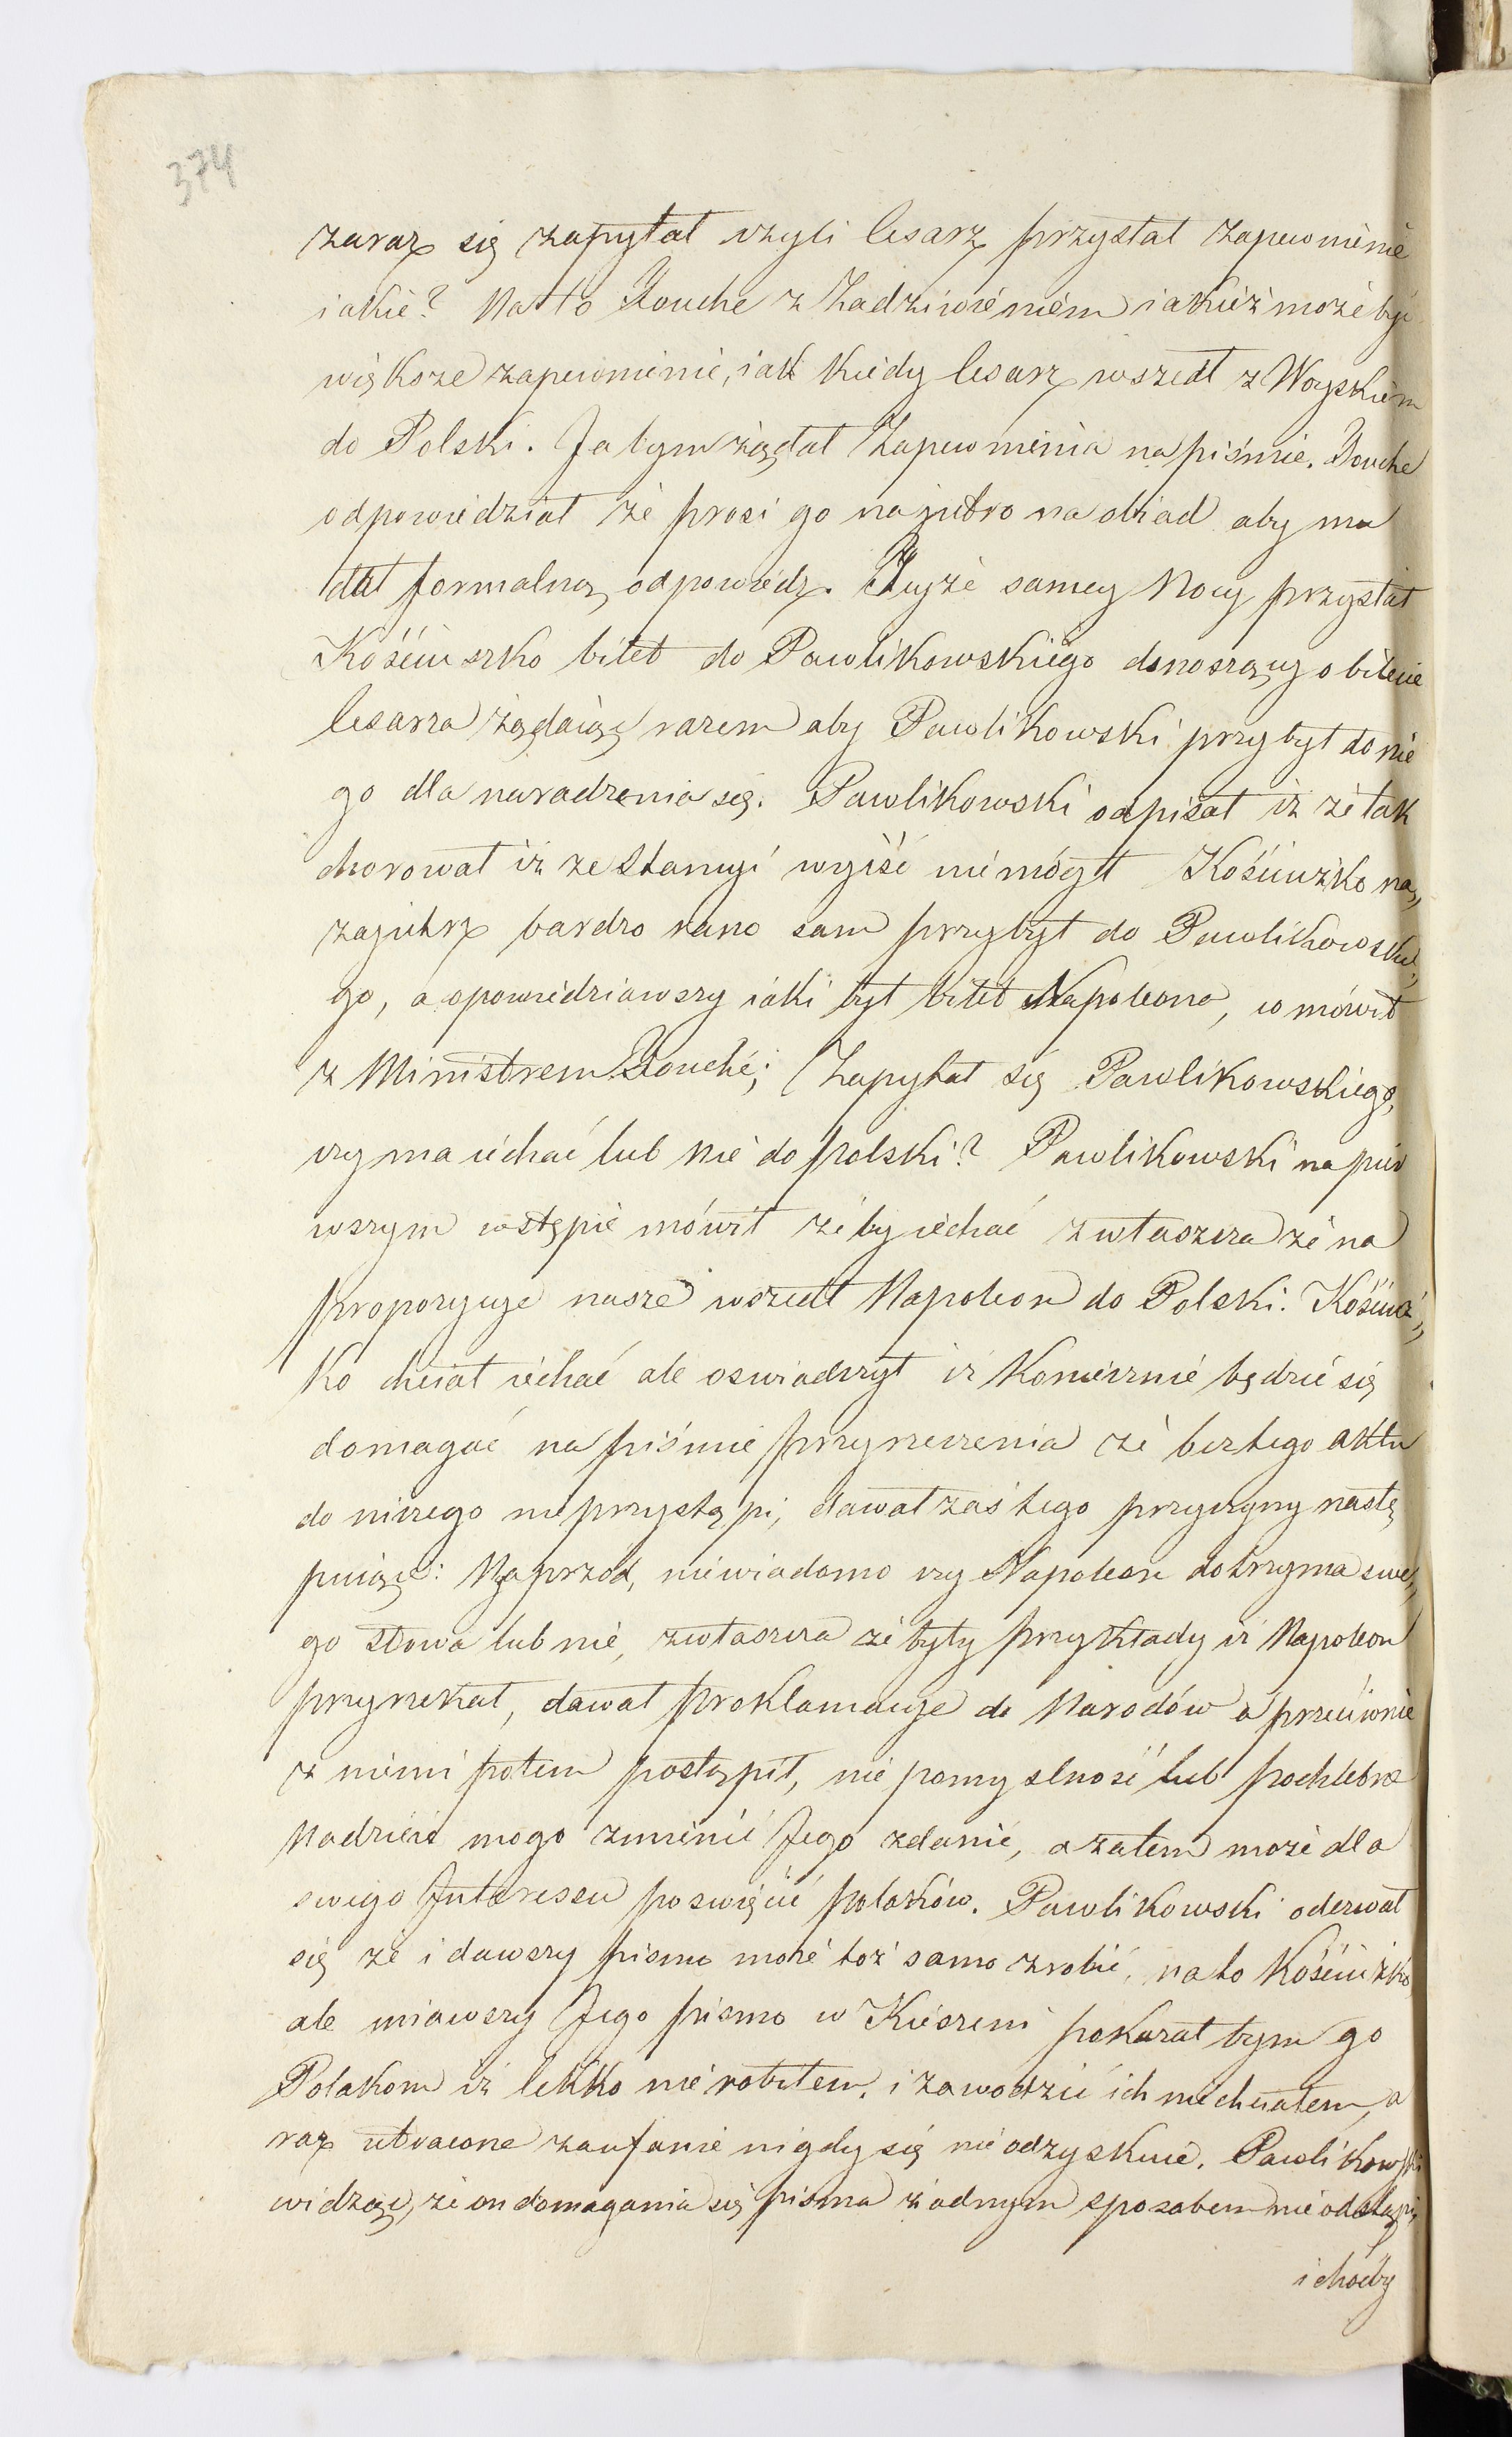 374
zaraz się zapytał czyli Cesarz przysłał zapewnienie
iakie? Na to Fouche z Zadziwieniem iakież może być
większe zapewnienie, iak kiedy Cesarz wszedł z Woyskiem
do Polski. Ja bym żądał Zapewnienia na piśmie. Fouche
odpowiedział że prosi go na jutro na obiad aby mu
dał formalną odpowiedz. Teyże samey Nocy przysłał
Kościuszko bilet do Pawlikowskiego donoszący o bilecie
Cesarza żądaiąc razem aby Pawlikowski przybył do nie
go dla naradzenia się. Pawlikowski odpisał iż że tak
chorował iż ze Stancyi wyiść nie mógł Kościuszko na„
zajutrz bardzo rano sam przybył do Pawlikowskie„
go, a opowiedziawszy iaki był bilet Napoleona, co mówił
z Ministrem Fouché; Zapytał się Pawlikowskiego,
czy ma iechać lub nie do polski? Pawlikowski na pier
wszym wstępie mówił żeby iechać zwłaszcza że na
propozycyje nasze wszedł Napoleon do Polski. Kościusz„
ko chciał iechać ale oswiadczył iż koniecznie będzie się
domagać na piśmie przyrzeczenia że bez tego aktu
do niczego nie przystąpi, dawał zaś tego przyczyny nastę
puiące: Naprzód, niewiadomo czy Napoleon dotrzyma swe„
go słowa lub nie, zwłaszcza że były przykłady iż Napoleon
przyrzekał, dawał proklamacye do Narodów a przeciwnie
z niemi potem postąpił, nie pomyslność lub pochlebne
Nadzieie mogo zmienić Jego zdanie, a zatem może dla
swego Interessu poswięcić polaków. Pawlikowski oderwał
się że i dawszy pismo może toż samo zrobić, na to Kościuszko
ale miawszy Jego pismo w Kieszeni pokazał bym go
Polakom iż lekko nie robiłem, i zawodzić ich nie chciałem, a
raz utracone zaufanie nigdy się nie odzyskuie. Pawlikowski
widząc, że on domagania się pisma żadnym sposobem nie odstąpi,
i choćby